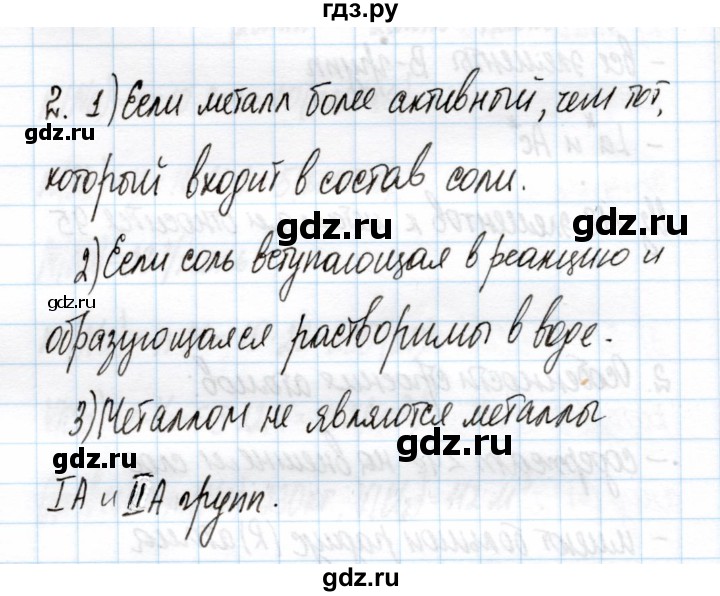 гдз.ру
2. 1) Если металл более активный, чем тот,
gdz.ru
который входит в состав соли.
gdz.ru
gdz.ru
2) Если соль вступающая в реакцию и
gdz.ru
образующаяся растворимы в воде.
3) Металлом не являются металлы
gdz.ru
gdz.ru
IА и IIА групп.
gdz.ru
gdz.ru